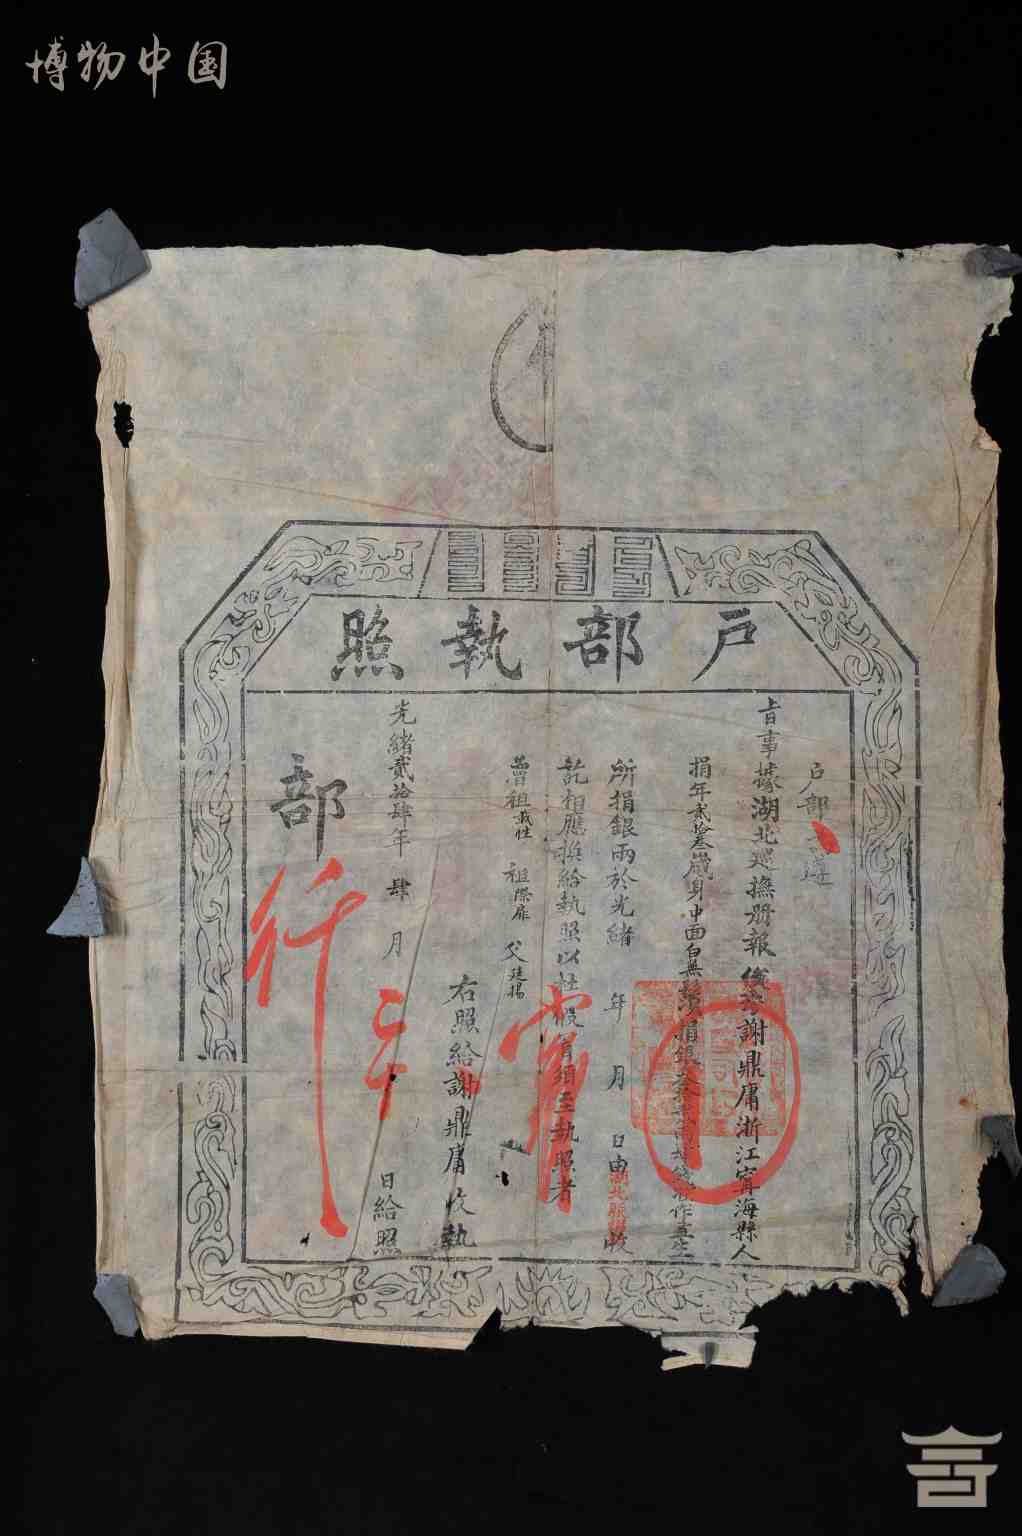 博物中国
戶部執照
戶部 遵
旨事據湖北巡撫册報俊秀謝鼎庸浙江寧海縣人
捐年貳拾叁歲身中面白無鬚 捐銀 作監生
所捐銀兩於光緒 年 月 日由湖北賑捐 收
訖相應換給執照以杜假冒須至執照者
曾祖 祖際 父廷揚
右照給謝鼎庸收執
光緒貳拾肆年 肆 月 日給照
部
行